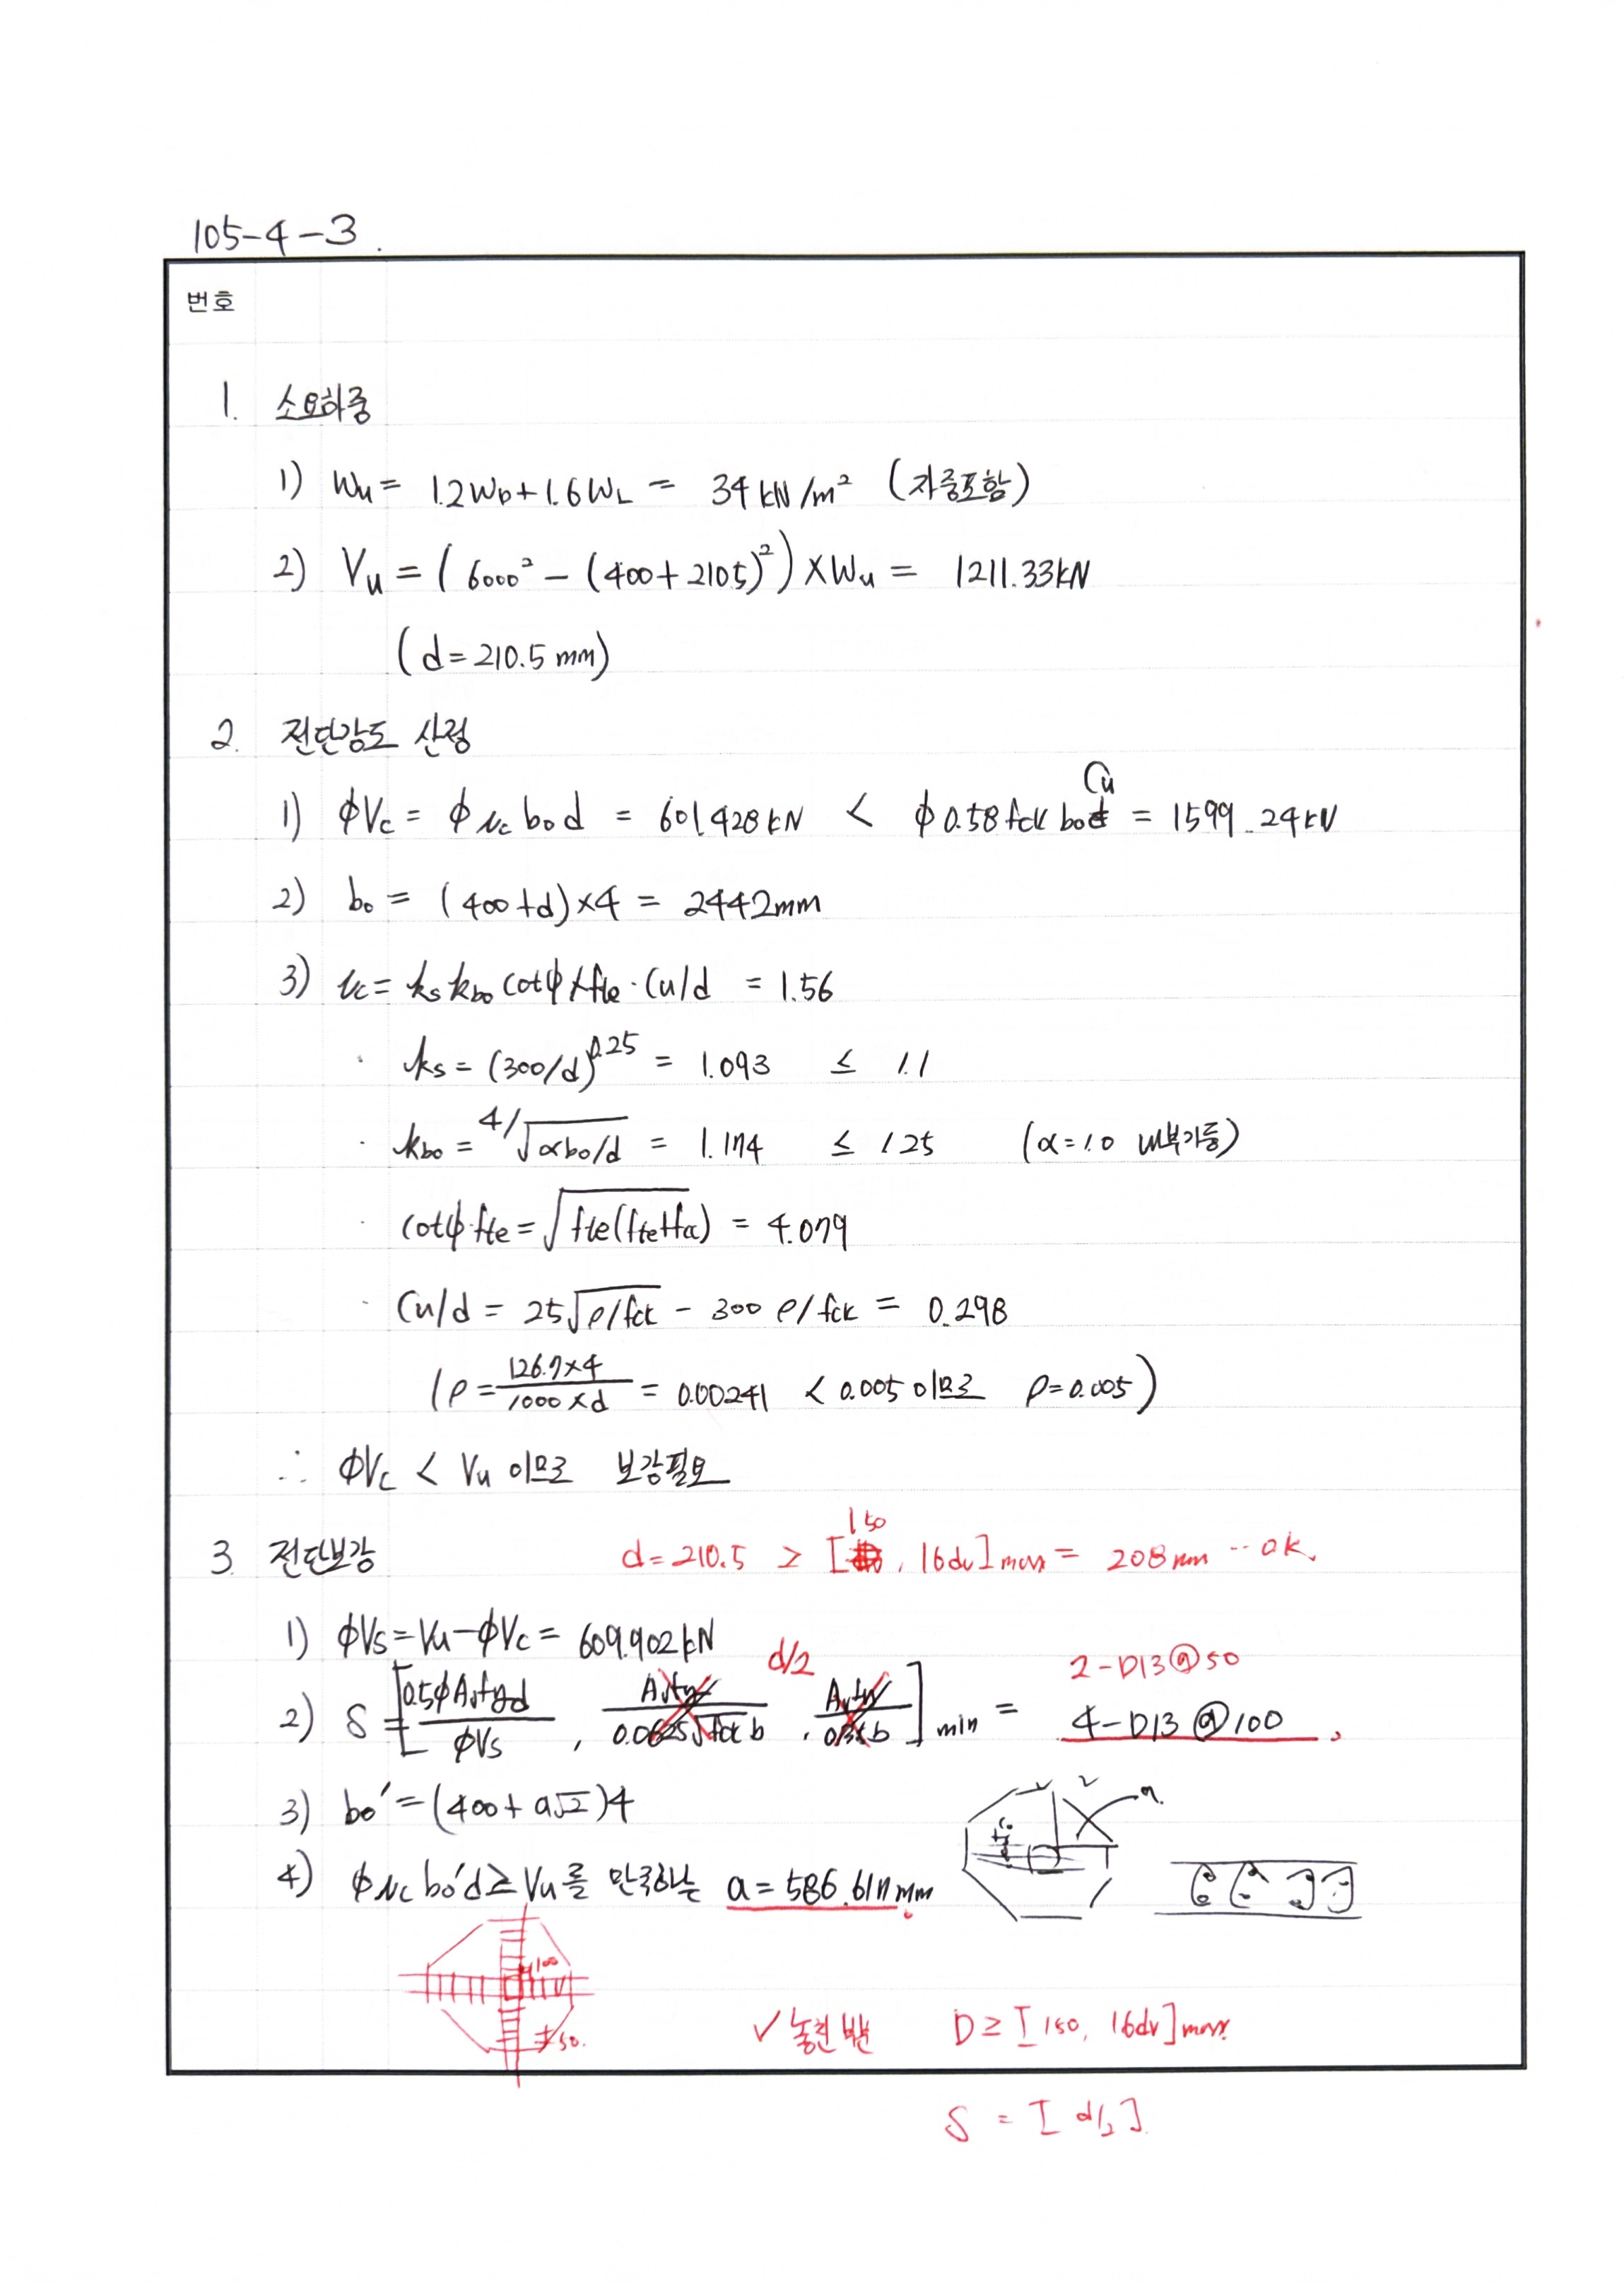 105-4-3.
번호
1. 소요하중
1) Wu = 1.2WD + 1.6WL = 34 kN/m² (자중포함)
2) Vu = (6000² - (400+210.5)²) × Wu = 1211.33kN
(d = 210.5 mm)
2. 전단강도 산정
1) φVc = φ νc bo d = 601.428 kN < φ 0.58 fck bo Cu = 1599.24 kN
2) bo = (400+d)×4 = 2442mm
3) νc = ks kbo cotψ fte · Cu/d = 1.56
· ks = (300/d)^0.25 = 1.093 ≤ 1.1
· kbo = 4/√(αbo/d) = 1.174 ≤ 1.25 (α=1.0 내부기둥)
· cotψ·fte = √(fte(fte+fcc)) = 4.079
· Cu/d = 25√(ρ/fck) - 300 ρ/fck = 0.298
(ρ = 126.7×4/1000×d = 0.00241 < 0.005 이므로 ρ=0.005)
∴ φVc < Vu 이므로 보강필요
3. 전단보강 d = 210.5 > [150, 16dv]max = 208mm ‥ ok.
1) φVs = Vu-φVc = 609.902 kN
2) S = [0.5φAvfyd/φVs, d/2]min = 4-D13@100
2-D13@50
3) bo' = (400+a√2)4
4) φνc bo'd ≥ Vu를 만족하는 a = 586.617mm
a
100
50.
✓ 놓친 부분 D ≥ [150, 16dv]max.
S = [d/2]